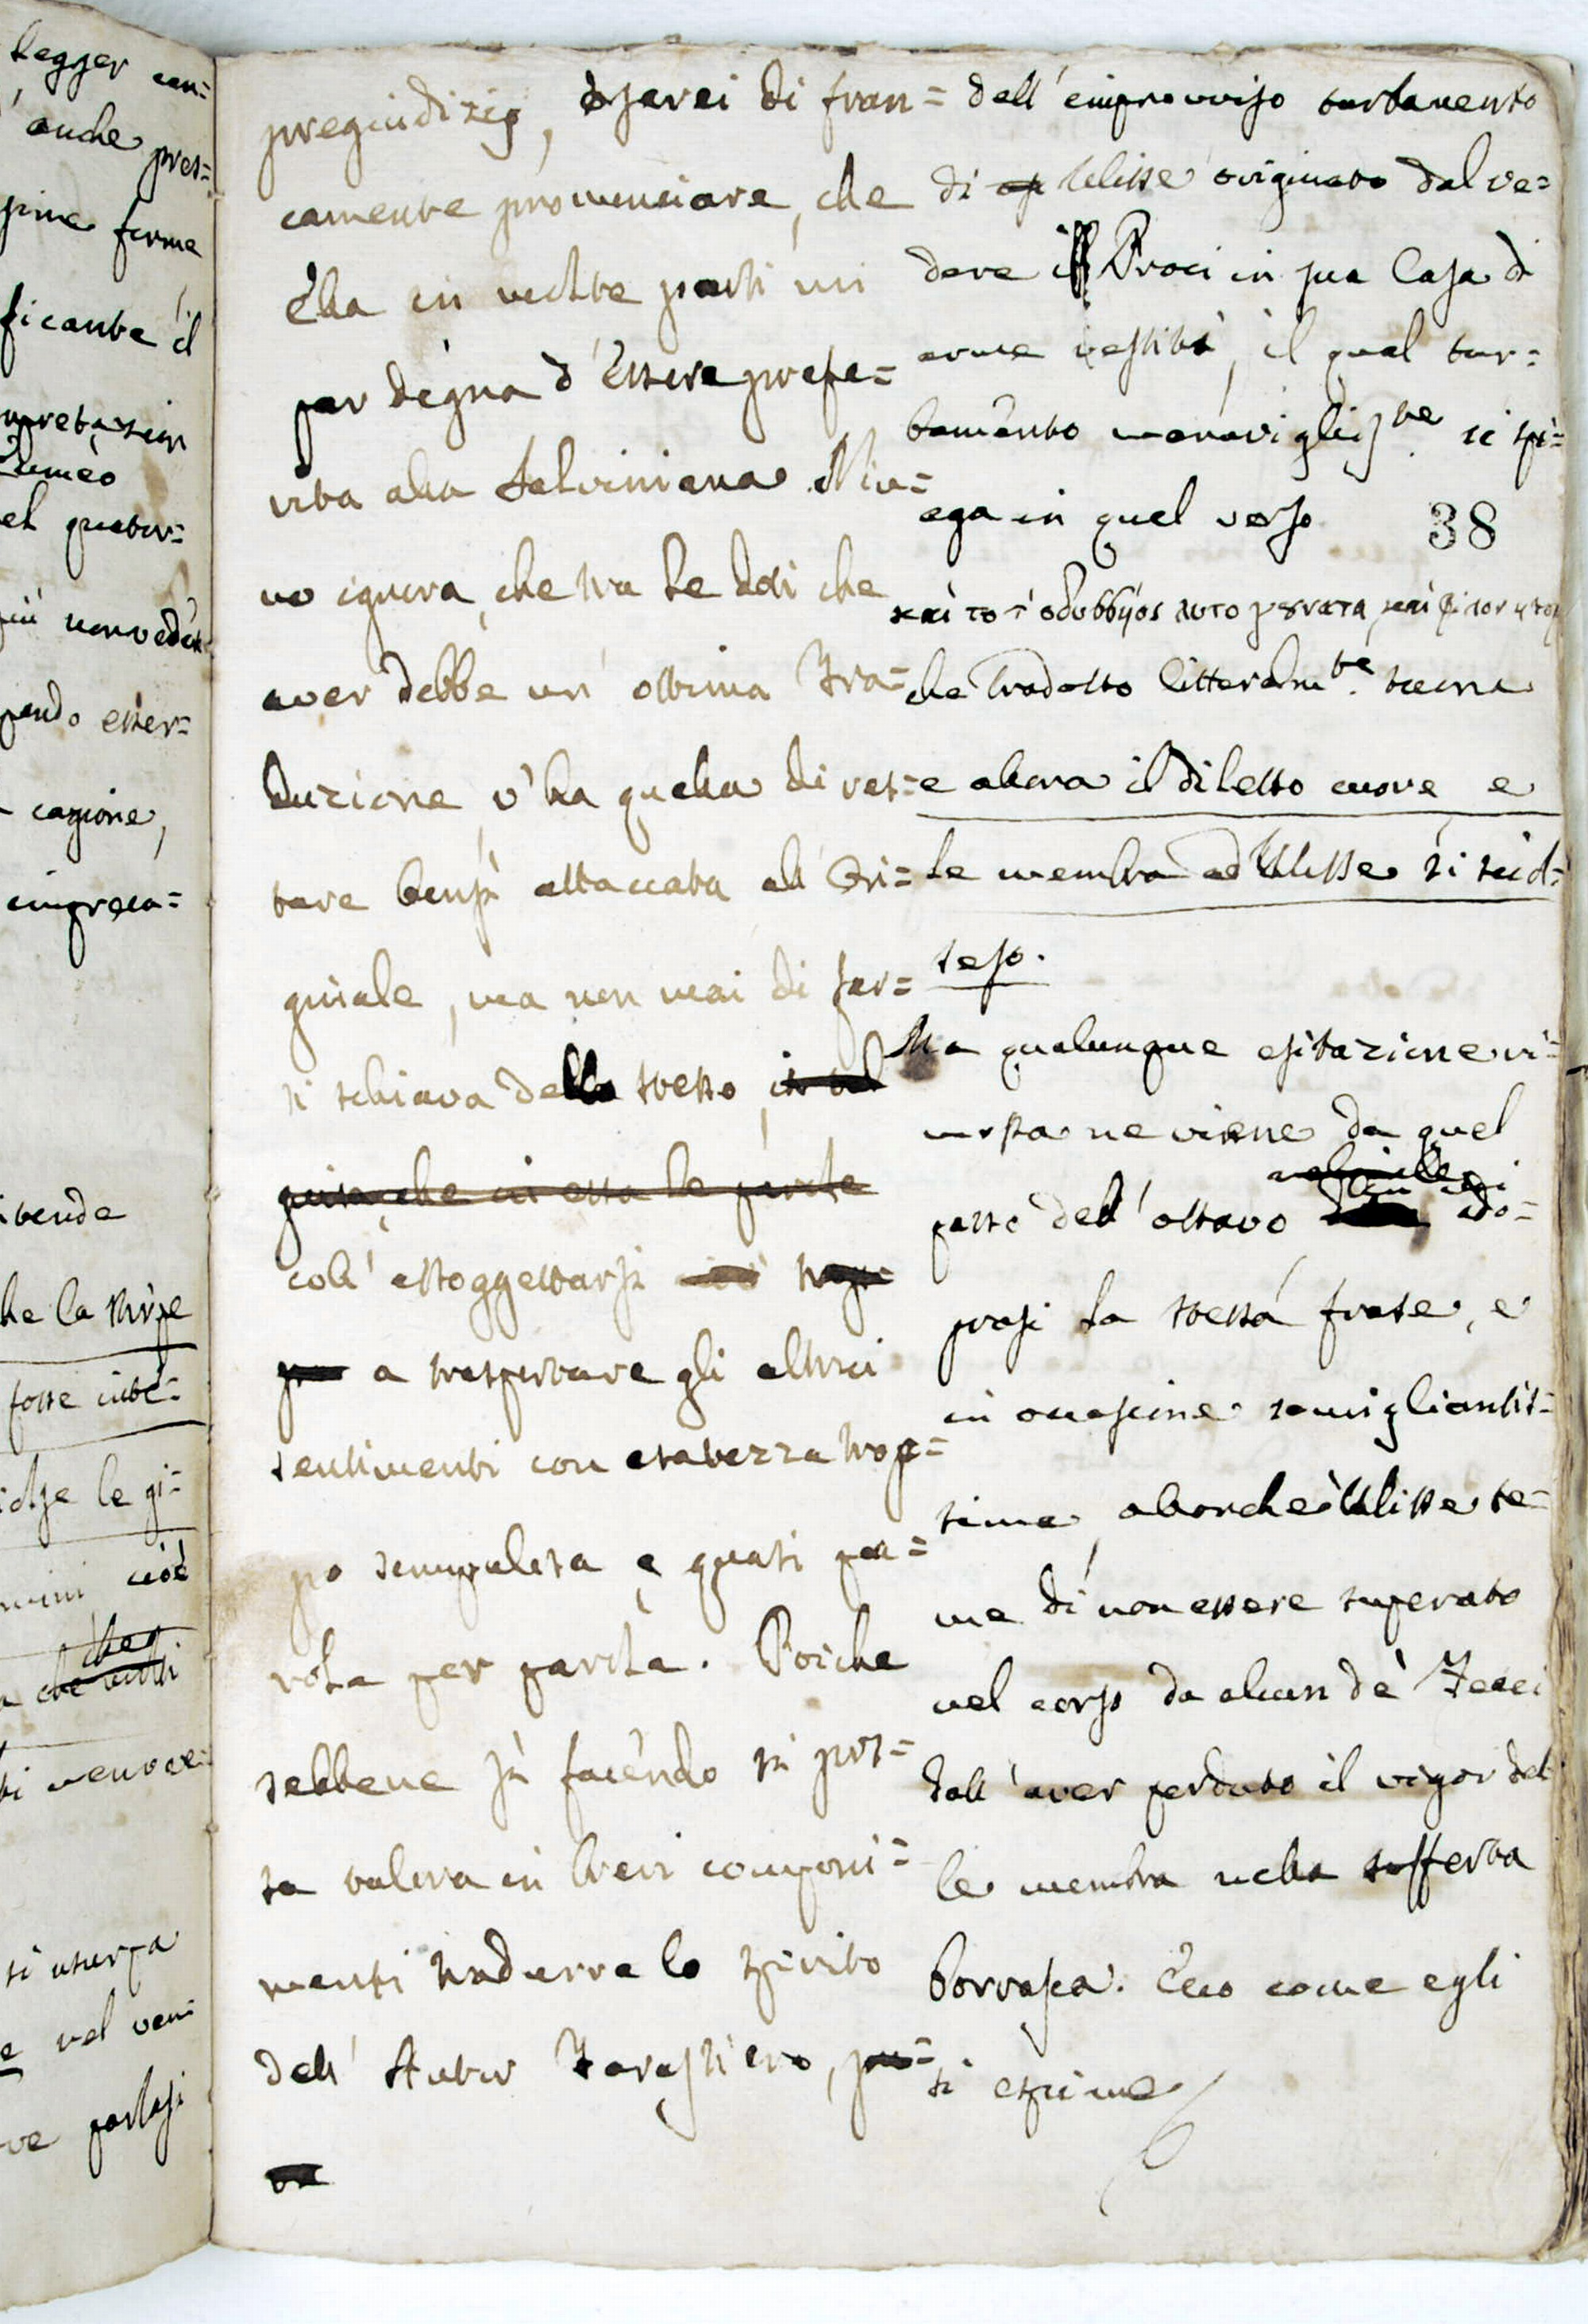 legger con=
anche pres=
pine forme
ficante il
mpretazion
Eumèo
el quatur=
più non vedut
pendo esser=
cagione,
impreca=
ivenda
he la stirpe
fosse imbe=
iolse le gi=
cioè
che
si usurpa
e nel ven=
ve parlasi
pregiudizio, oserei di fran=
camente pronunciare, che
ella in molte parti mi
par degna d'essere prefe=
rita alla Salviniana. Niu=
no ignora, che tra le doti che
aver debbe un' ottima Tra=
duzione, v'ha quella di res=
tare bensì attaccata all' Ori=
ginale, ma non mai di far=
si schiava dello stesso, in tal
guisa, che in essa le parole
coll' assoggettarsi
a trasportare gli altrui
sentimenti con esatezza trop=
po scrupulosa e quasi pa=
rola per parola. Poiche
sebbene sì facendo si pos=
sa talora in brevi componi=
menti tradurre lo spirito
dell' Autor Forastiero, pu=
re
dell' improvviso turbamento
di Ulisse originato dal ve=
dere i Proci in sua Casa di
arme vestiti, il qual tur=
bamento maraviglios.te si spi=
ega in quel verso
38
καὶ το τ' οδυσσῆος λυτο γουνατα, καὶ φιλον ητορ
che tradotto litteralm.te suona
e allora il diletto cuore e
le membra ad Ulisse si sciol=
sero.
Ma qualunque esitazione ri=
mossa ne viene da quel
passo dell' ottavo ado=
prasi la stessa frase, e
in occasione somigliantis=
sima, allorchè Ulisse te=
me di non essere superato
nel corso da alcun de' Feaci
dall' aver perduto il vigor del
le membra nella sofferta
borrasca. Ecco come egli
si esprime